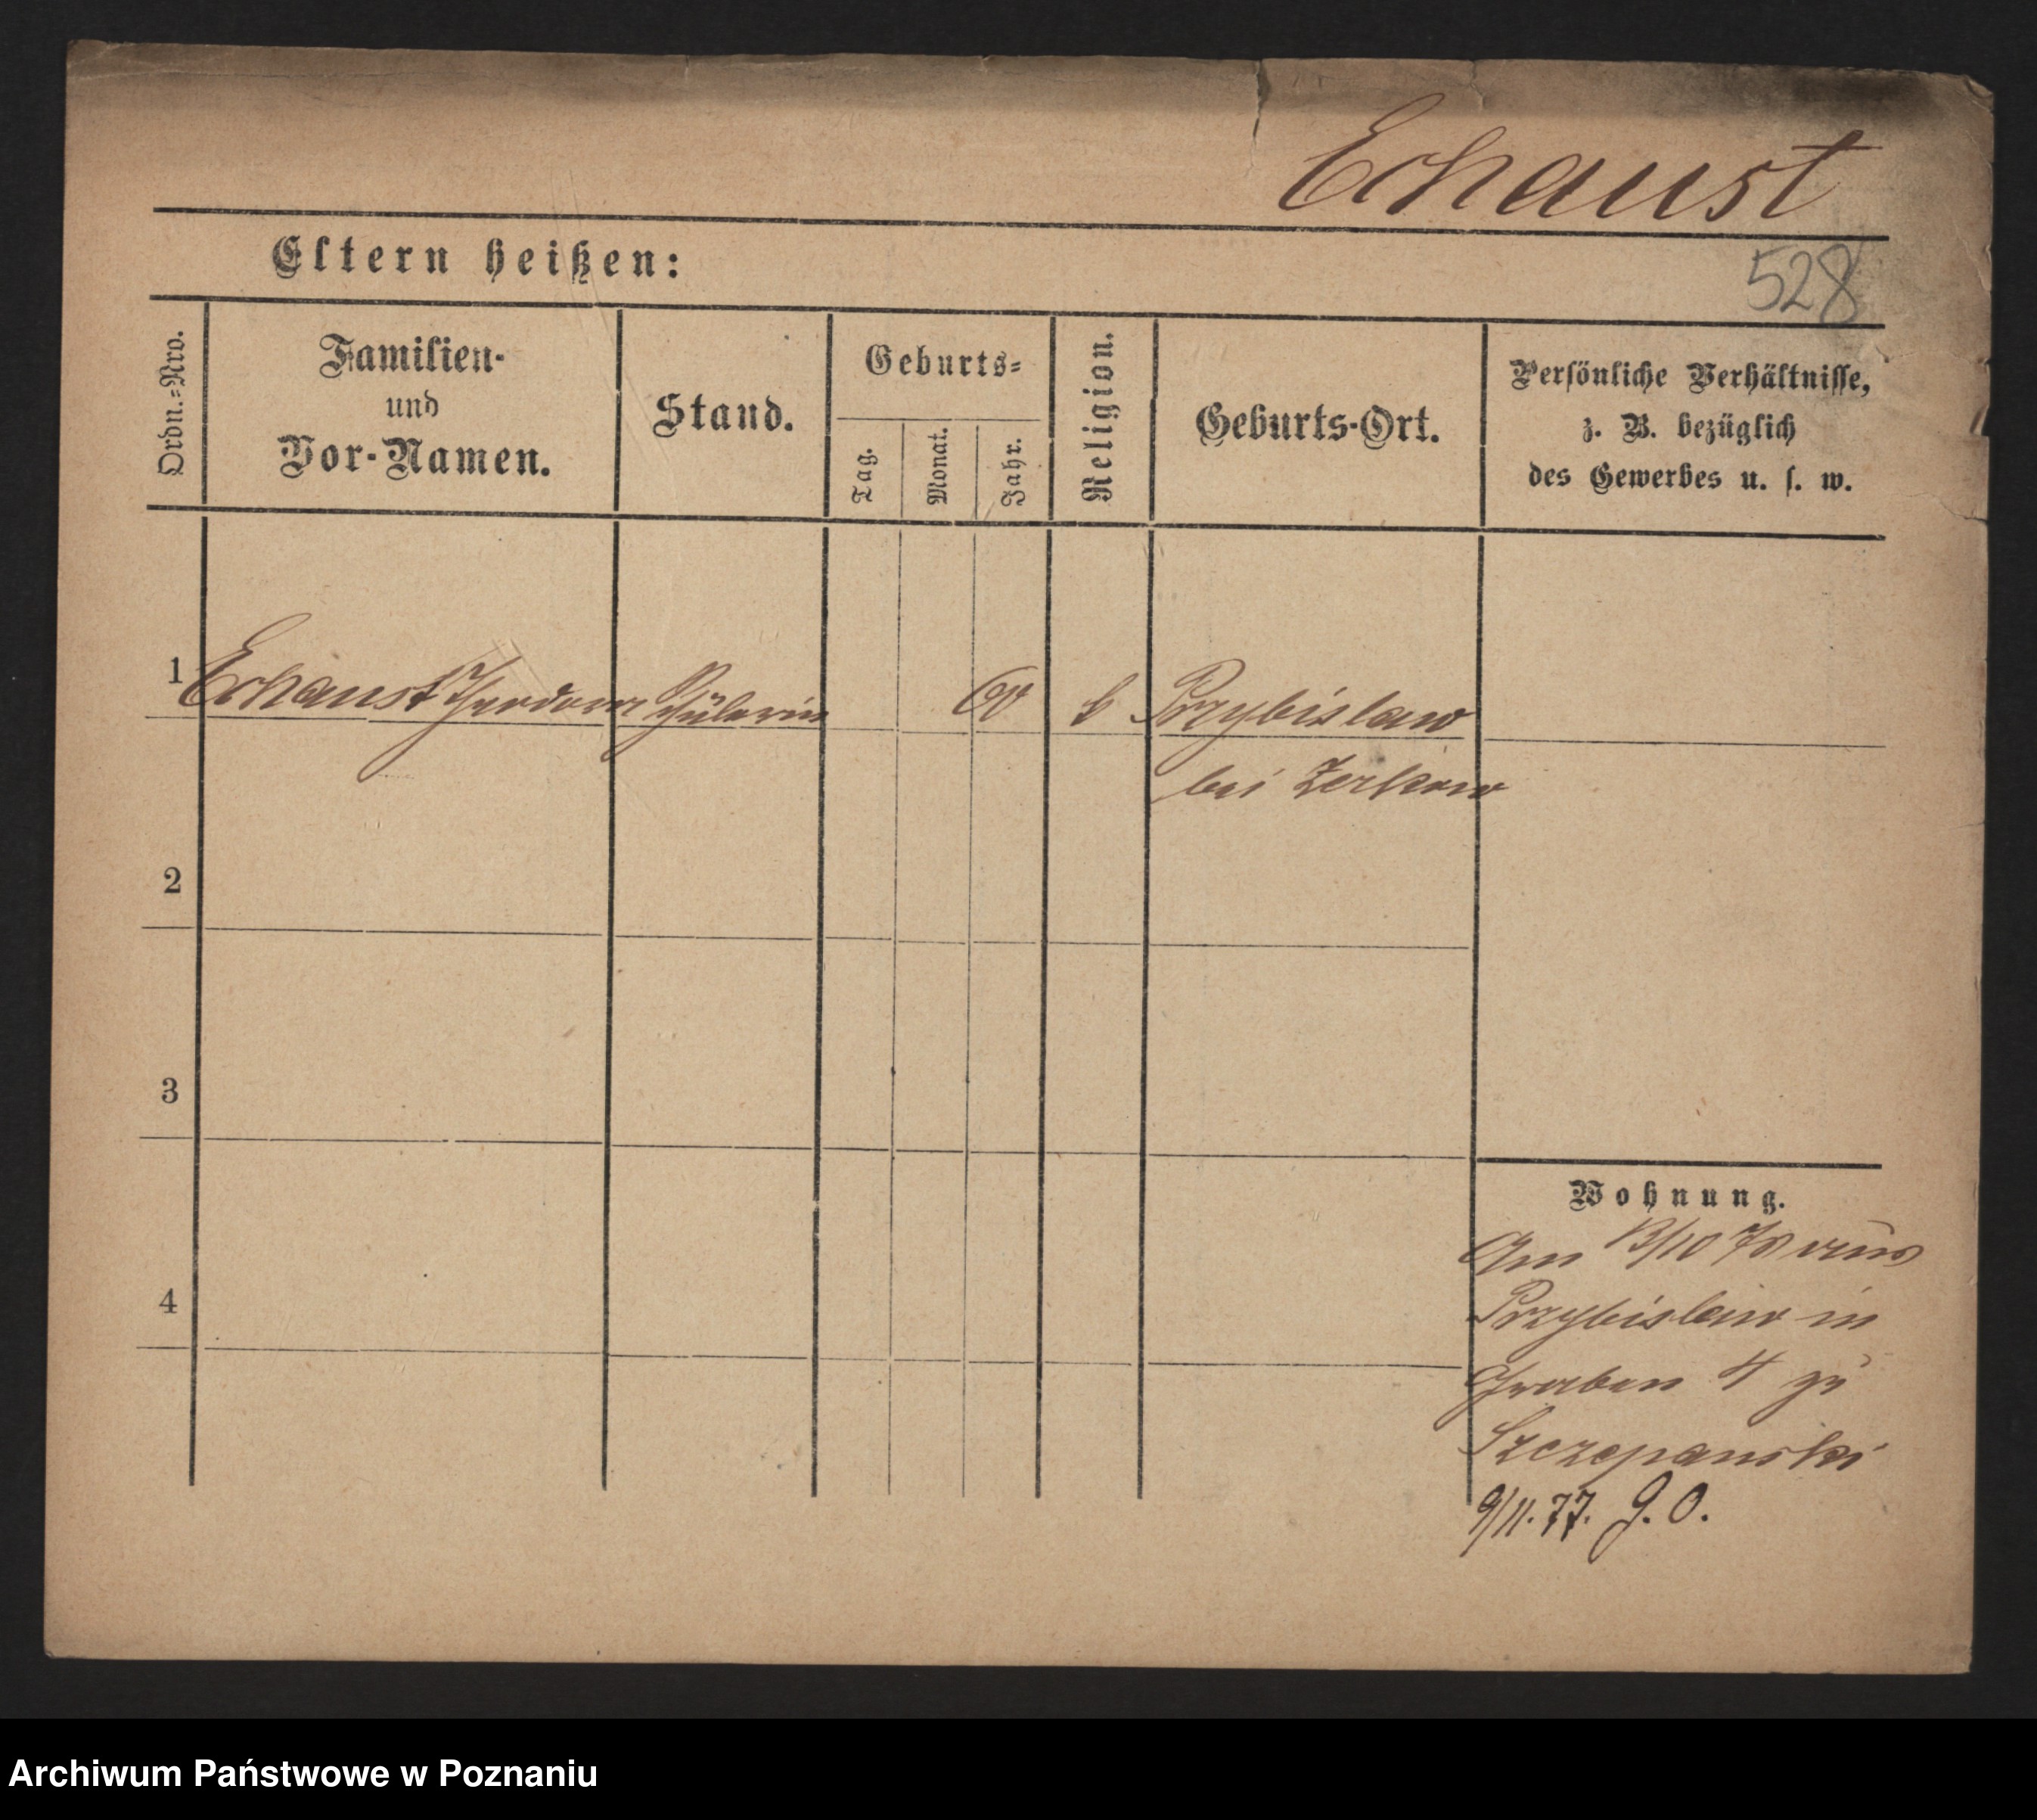 Echaust
Eltern heißen:
528
Ordn.-Nro.
Familien-
und
Vor-Namen.
Stand.
Geburts-
Tag.
Monat.
Jahr.
Religion.
Geburts-Ort.
Persönliche Verhältnisse,
z. B. bezüglich
des Gewerbes u. s. w.
1 Echaust Schülerin Przybislaw
bei Zerkow
2
3
4
Wohnung.
Am 13/10 aus
Przybislaw in
Graben 4 zu
Szczepanski
9/11. 77. G. O.
Archiwum Państwowe w Poznaniu